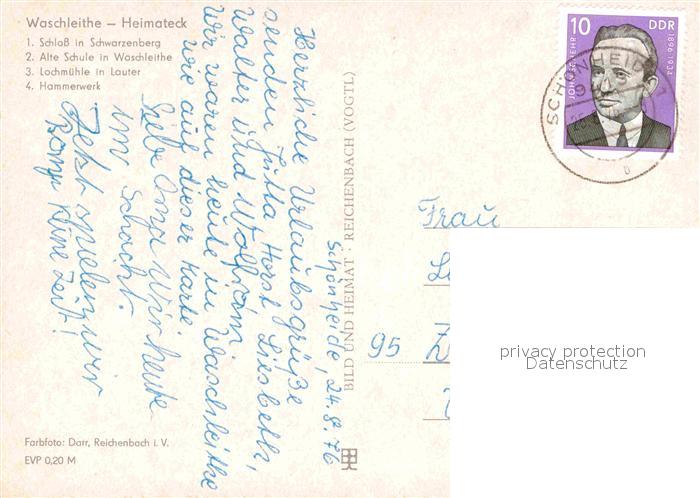 Waschleithe — Heimateck
1. Schloß in Schwarzenberg
2. Alte Schule in Waschleithe
3. Lochmühle in Lauter
4. Hammerwerk
Schönheide, 24.8.76
Herzliche Urlaubsgrüße
senden Jutta Horst Liesbeth,
Walter und Wolfram.
Wir waren heute in Waschleithe
wie auf dieser Karte.
Liebe Oma wir heute
im Schacht.
Jetzt spielen wir
keine Zeit!
Farbfoto: Darr, Reichenbach i. V.
EVP 0,20 M
BILD UND HEIMAT · REICHENBACH (VOGTL)
10 DDR
JOHN SCHEHR
1896-1934
SCHÖNHEIDE
Frau
95
privacy protection
Datenschutz